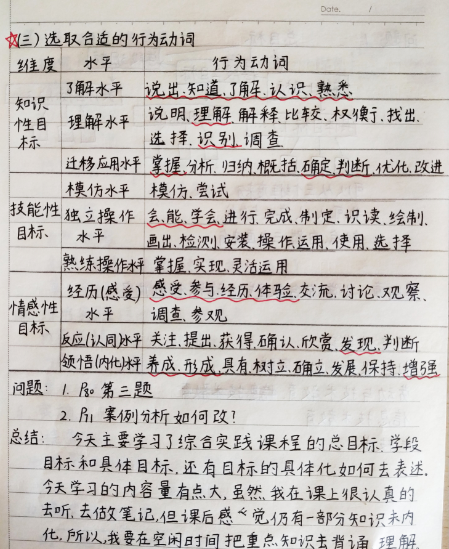 Date. /
☆(三)选取合适的行为动词
维度 水平 行为动词
知识性目标 了解水平 说出、知道、了解、认识、熟悉
理解水平 说明、理解、解释、比较、权衡、找出、
选择、识别、调查
迁移应用水平 掌握、分析、归纳、概括、确定、判断、优化、改进
技能性目标 模仿水平 模仿、尝试
独立操作水平 会、能、学会、进行、完成、制定、识读、绘制、
画出、检测、安装、操作运用、使用、选择
熟练操作水平 掌握、实现、灵活运用
情感性目标 经历(感受)水平 感受、参与、经历、体验、交流、讨论、观察、
调查、参观
反应(认同)水平 关注、提出、获得、确认、欣赏、发现、判断
领悟(内化)水平 养成、形成、具有、树立、确立、发展、保持、增强
问题: 1. P80 第三题
2. 案例分析如何改?
总结: 今天主要学习了综合实践课程的总目标、学段
目标和具体目标,还有目标的具体化如何去表述.
今天学习的内容量有点大,虽然我在课上很认真的
去听、去做笔记,但课后感觉仍有一部分知识未内
化,所以,我要在空闲时间把重点知识去背诵、理解.